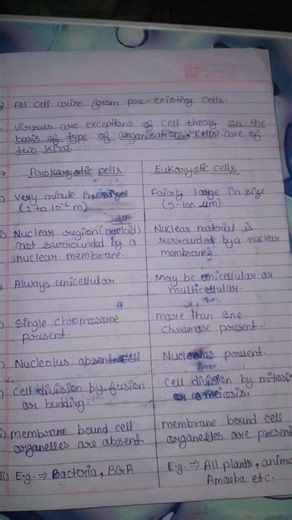 All cell arise from pre-existing cells.
Viruses are exceptions of cell theory on the
basis of type of organisations cells are of
two kind.
Prokaryotic cells
Eukaryotic cells
Very minute in size
(1 to 10⁻⁶ m).
Fairly large in size
(5-100 µm)
Nuclear region (nucleoid)
not surrounded by a
nuclear membrane
Nuclear material is
surrounded by a nuclear
membrane
Always unicellular
May be unicellular or
multicellular.
Single chromosome
present
more than one
chromosome present.
Nucleolus absent
Nucleolus present
cell division by fusion
or budding
cell division by mitosis
or meiosis.
membrane bound cell
organelles are absent.
membrane bound cell
organelles are present
E.g. ⇒ Bacteria, BGA
E.g. ⇒ All plants, anima
Amoeba etc.